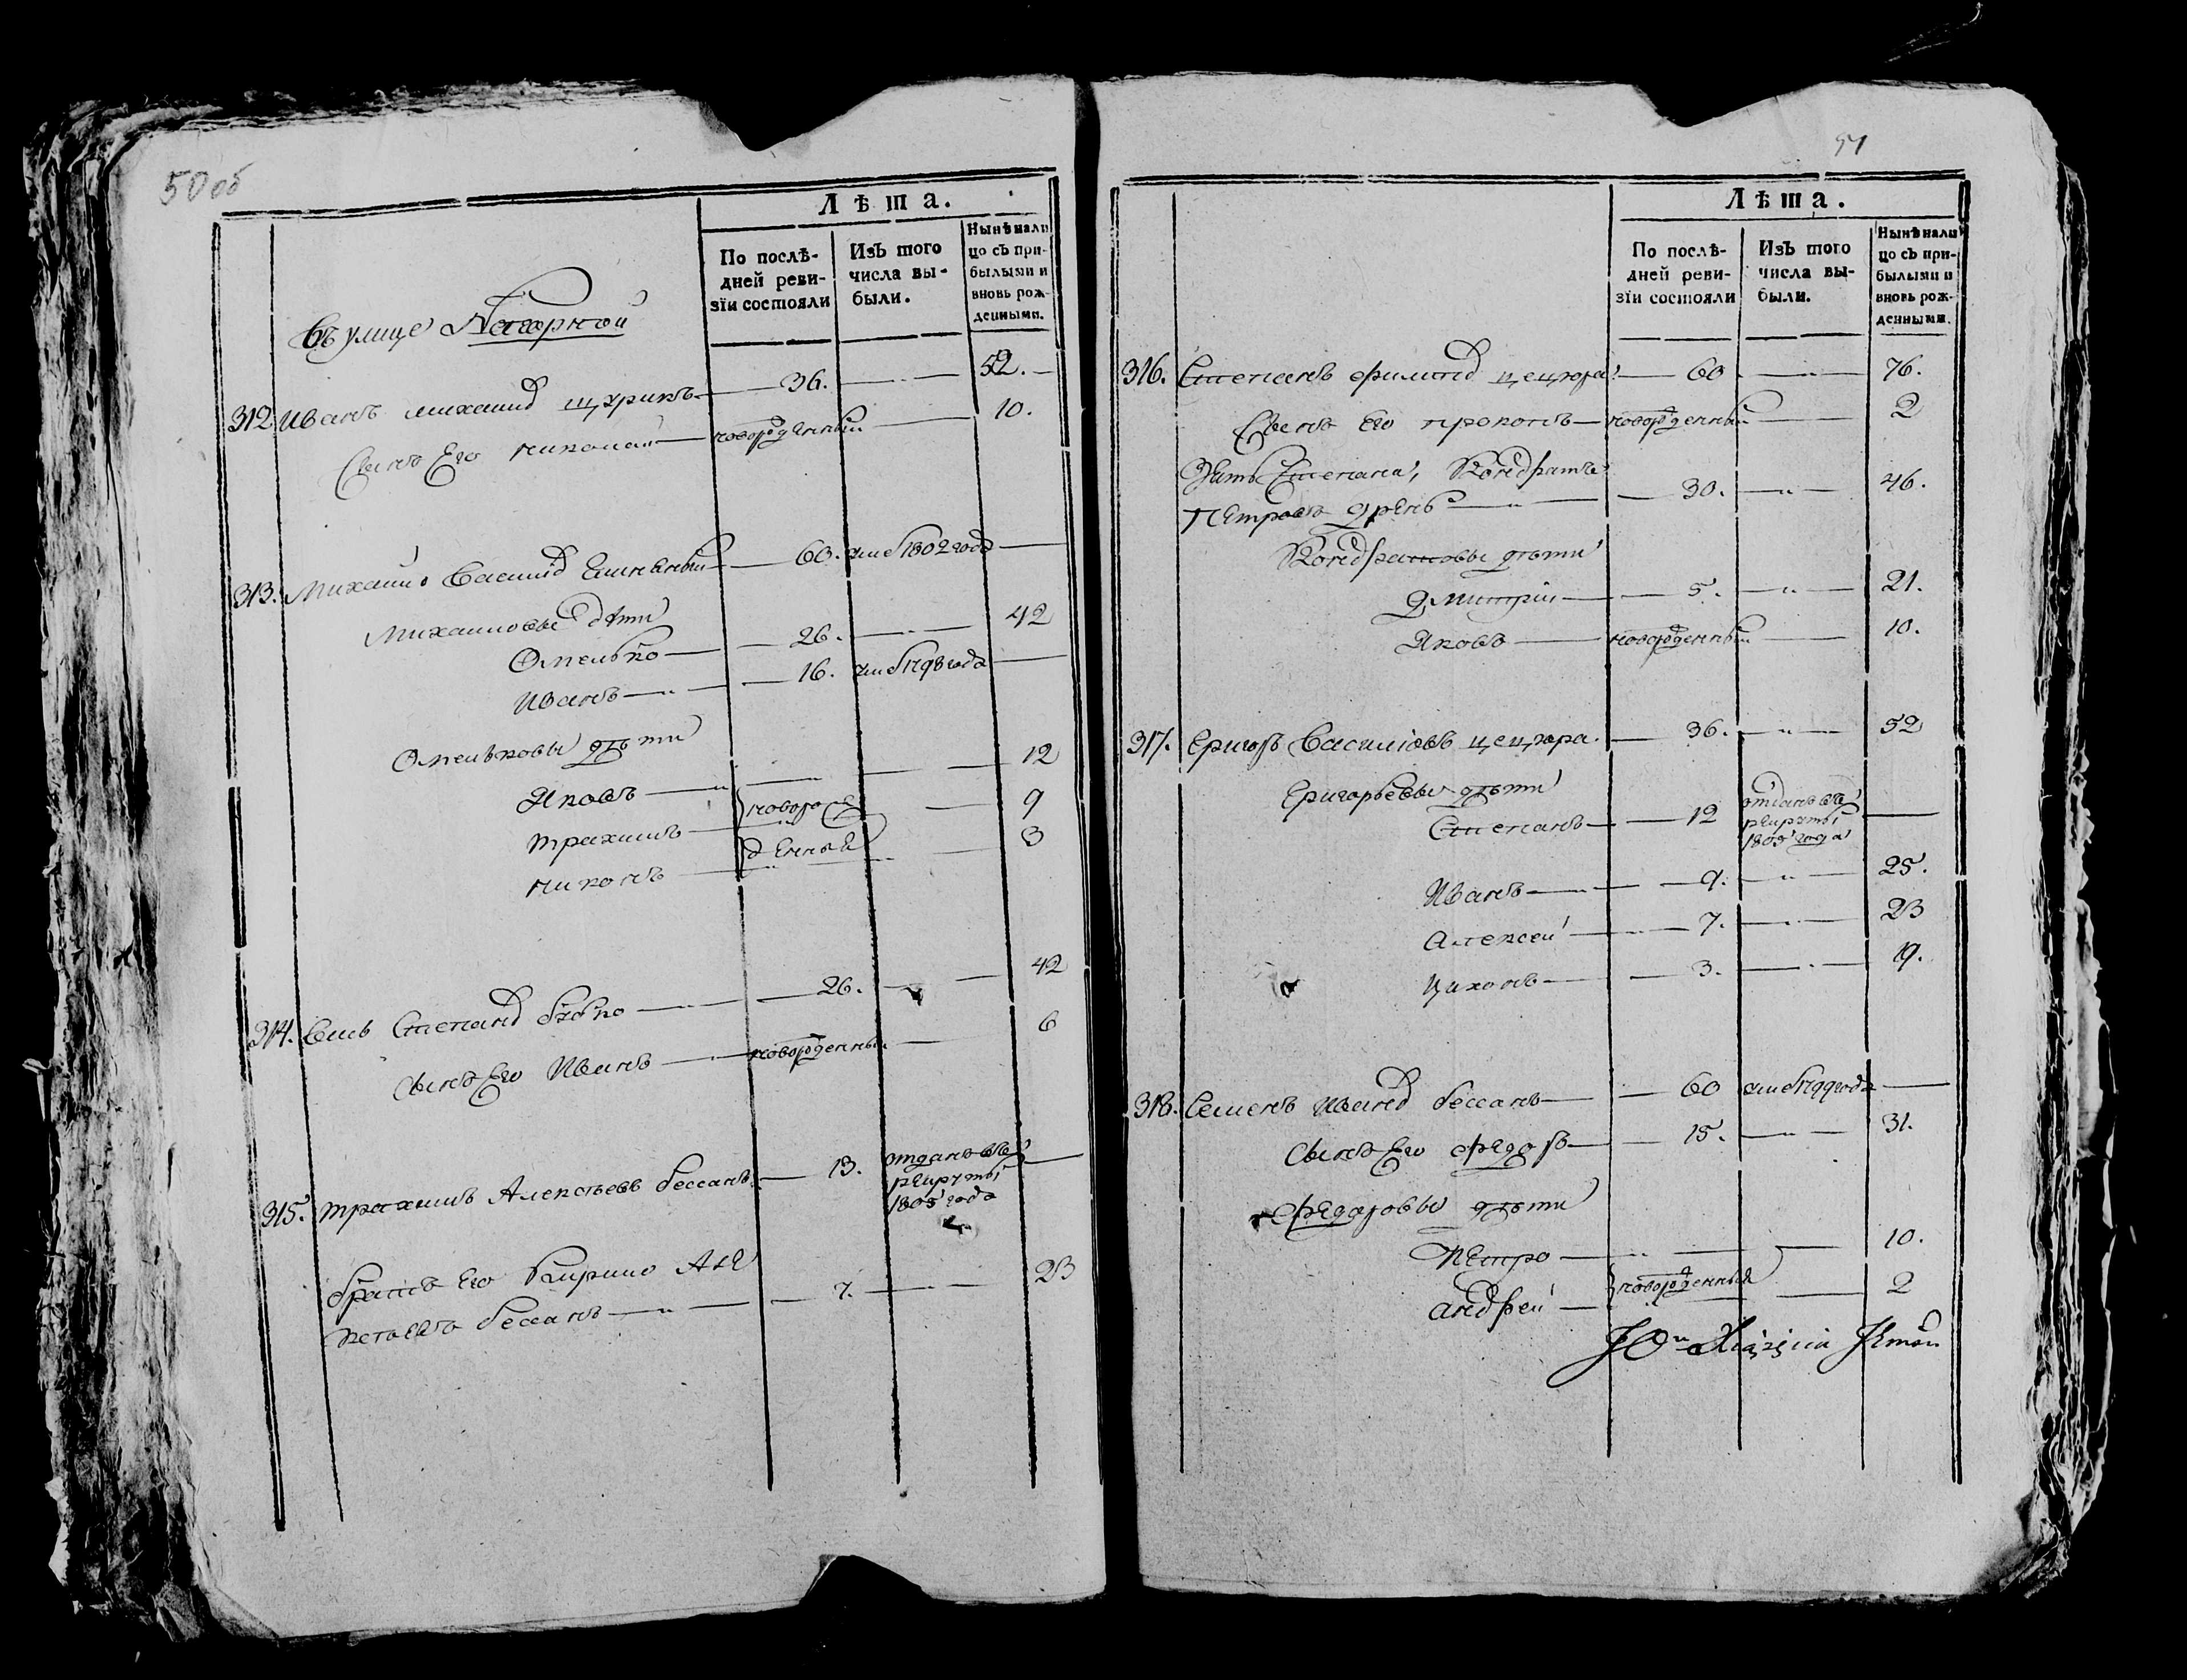 50 об
Лѣта.
По послѣ-
дней реви-
зіи состояли
Изъ того
числа вы-
были.
Нынѣ нали
цо съ при-
былыми и
вновь рож-
денными.
Въ улице Нагорной
312 Иванъ михаилд щурикъ 36. 52.
Сынъ Его николай новорожденный 10.
313. Михаило Василід 60. умеб 1802 года
Михаиловы дѣти
Омелько 26. 42
Иванъ 16. умеб 1798 года
Омельковы дѣти
Яковъ 12
Трахимъ новорож 9
никонъ денныя 3
314. Степанд бабко 26. 42
сынъ Его Иванъ новорожденный 6
315. Трахимъ Алексѣевъ бессанъ 13. отданъ въ
рекруты
1805 года
братъ Его Кирило Але
ксѣевъ бессанъ 7. 23
51
Лѣта.
По послѣ-
дней реви-
зіи состояли
Изъ того
числа вы-
были.
Нынѣ нали
цо съ при-
былыми и
вновь рож-
денными.
316. Степанъ филипд цецюра 60 76.
Сынъ Его прокопъ новорожденный 2
Зять Степана, Кондратъ
Петровъ 30. 46.
Кондратовы дѣти
Дмитрій 5. 21.
Яковъ новорожденный 10.
317. Григоръ Василіовъ цецюра. 36. 52
Григорьевы дѣти
Степанъ 12 отданъ въ
рекруты
1805 года
Иванъ 9. 25.
Алексей 7. 23
3. 19.
318. Семенъ Иванд бессанъ 60 умеб 1799 года
Сынъ Его Федоръ 15. 31.
Федоровы дѣти
Петро 10.
Андрей новорожденныя 2